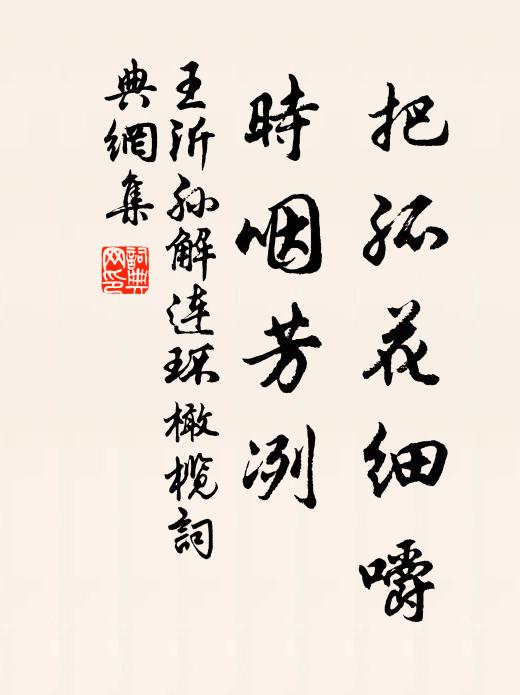 把孤花细嚼
時咽芳冽
王沂孙解连环橄榄詞
典網集
詞典网印